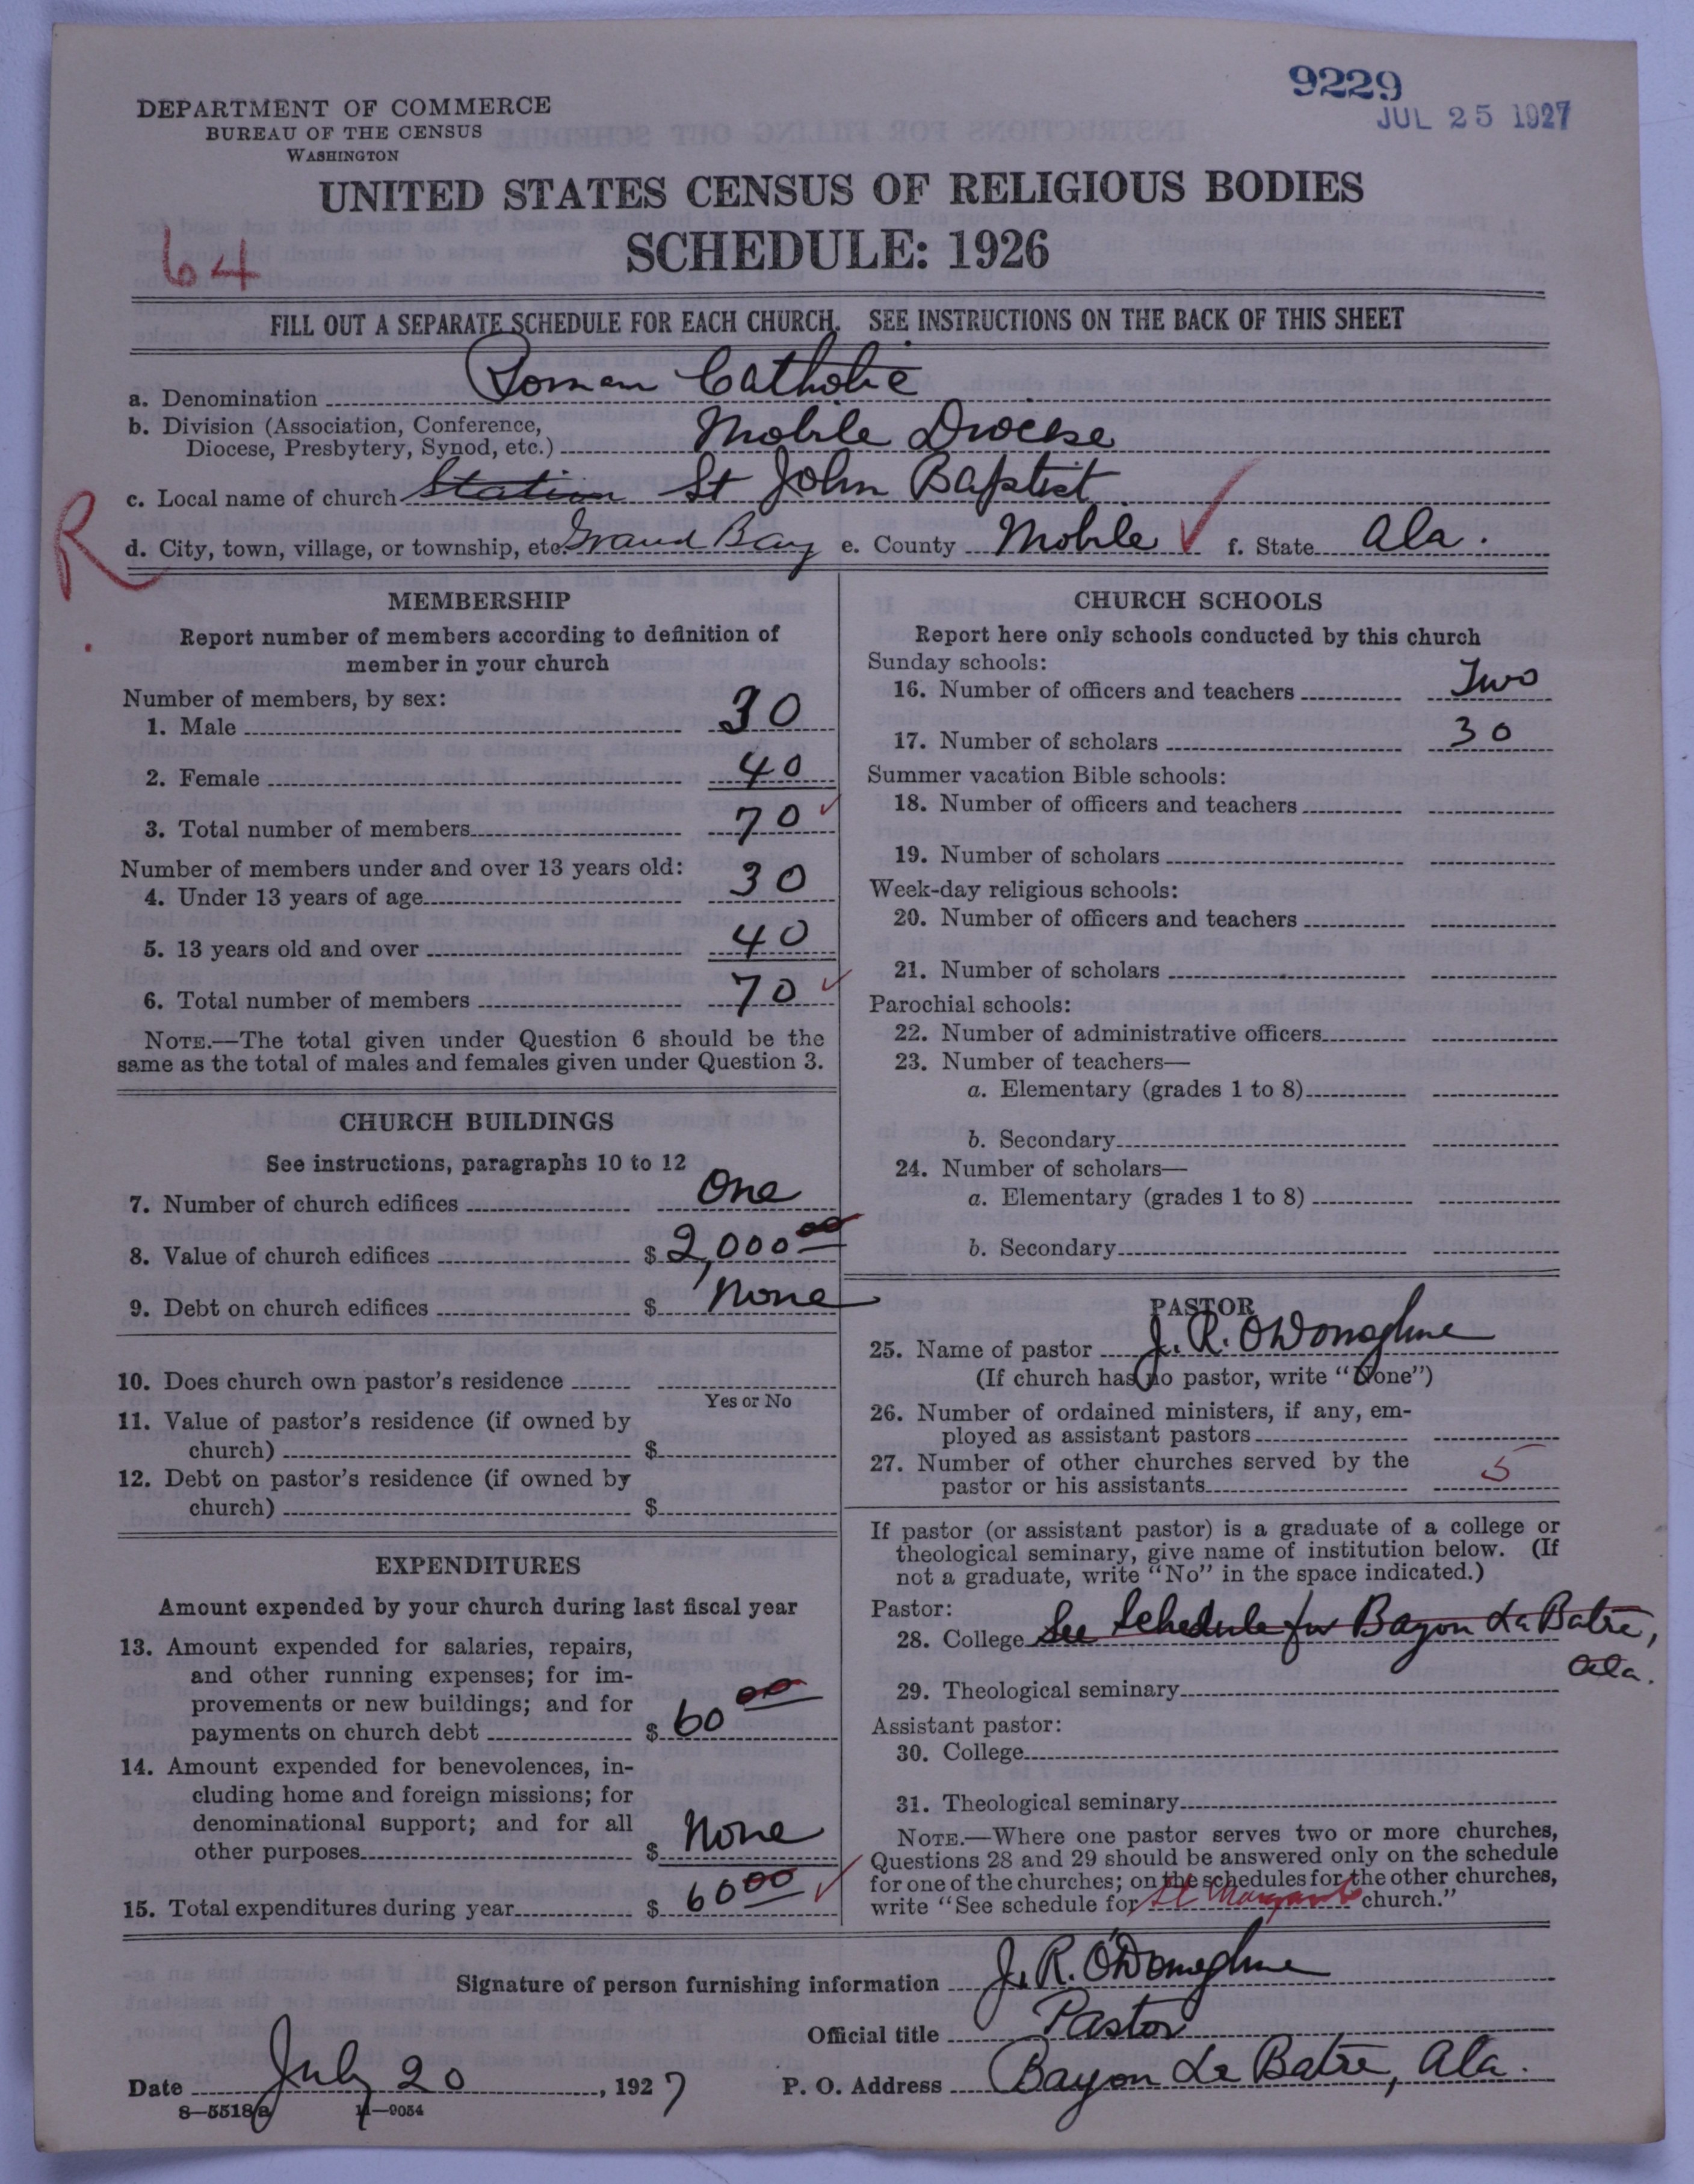 9229
JUL 25 1927
DEPARTMENT OF COMMERCE
BUREAU OF THE CENSUS
WASHINGTON
UNITED STATES CENSUS OF RELIGIOUS BODIES
SCHEDULE: 1926
64
FILL OUT A SEPARATE SCHEDULE FOR EACH CHURCH. SEE INSTRUCTIONS ON THE BACK OF THIS SHEET
a. Denomination Roman Catholic
b. Division (Association, Conference,
Diocese, Presbytery, Synod, etc.) Mobile Diocese
c. Local name of church Station St John Baptist
R
d. City, town, village, or township, etc. Grand Bay e. County Mobile f. State Ala.
MEMBERSHIP
Report number of members according to definition of
member in your church
Number of members, by sex:
1. Male 30
2. Female 40
3. Total number of members 70
Number of members under and over 13 years old:
4. Under 13 years of age 30
5. 13 years old and over 40
6. Total number of members 70
NOTE.—The total given under Question 6 should be the
same as the total of males and females given under Question 3.
CHURCH BUILDINGS
See instructions, paragraphs 10 to 12
7. Number of church edifices One
8. Value of church edifices $ 2,000 00
9. Debt on church edifices $ None
10. Does church own pastor's residence
Yes or No
11. Value of pastor's residence (if owned by
church) $
12. Debt on pastor's residence (if owned by
church) $
EXPENDITURES
Amount expended by your church during last fiscal year
13. Amount expended for salaries, repairs,
and other running expenses; for im-
provements or new buildings; and for
payments on church debt $ 60 00
14. Amount expended for benevolences, in-
cluding home and foreign missions; for
denominational support; and for all
other purposes $ None
15. Total expenditures during year $ 60 00
CHURCH SCHOOLS
Report here only schools conducted by this church
Sunday schools:
16. Number of officers and teachers Two
17. Number of scholars 30
Summer vacation Bible schools:
18. Number of officers and teachers
19. Number of scholars
Week-day religious schools:
20. Number of officers and teachers
21. Number of scholars
Parochial schools:
22. Number of administrative officers
23. Number of teachers—
a. Elementary (grades 1 to 8)
b. Secondary
24. Number of scholars—
a. Elementary (grades 1 to 8)
b. Secondary
PASTOR
25. Name of pastor J. R. O'Donoghue
(If church has no pastor, write "None")
26. Number of ordained ministers, if any, em-
ployed as assistant pastors
27. Number of other churches served by the
pastor or his assistants 5
If pastor (or assistant pastor) is a graduate of a college or
theological seminary, give name of institution below. (If
not a graduate, write "No" in the space indicated.)
Pastor:
28. College See Schedule for Bayou La Batre,
Ala.
29. Theological seminary
Assistant pastor:
30. College
31. Theological seminary
NOTE.—Where one pastor serves two or more churches,
Questions 28 and 29 should be answered only on the schedule
for one of the churches; on the schedules for the other churches,
write "See schedule for St Margarets church."
Signature of person furnishing information J. R. O'Donoghue
Official title Pastor
Date July 20, 1927 P. O. Address Bayou La Batre, Ala.
8—5518a 11—9054